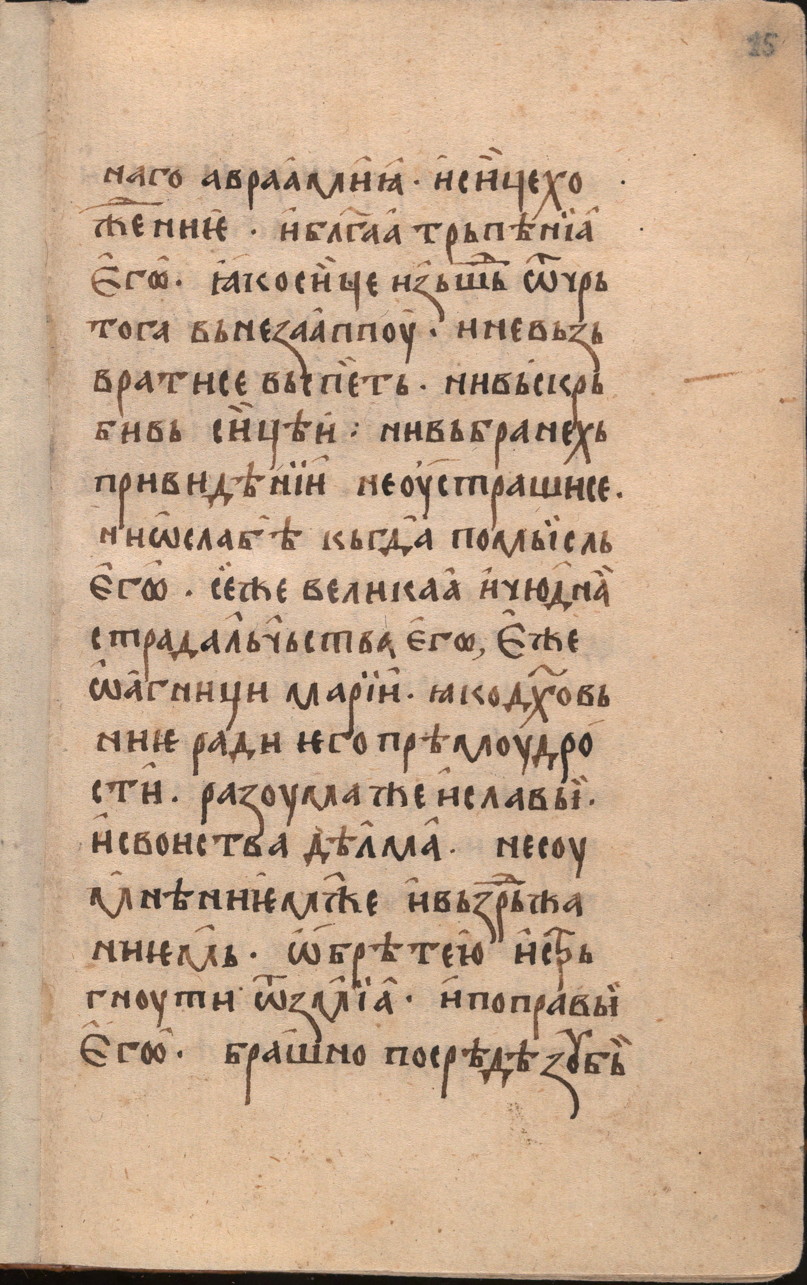 15
наго авраамиꙗ҆ · и҆ си́цехо
жⷣенниѥ · и҆ блгⷭ҇аа трьпѣ́нїа
Є҆гѡ̑ · ꙗ҆ко си́це изъшьⷣ ѿ чрь
тога вьнезаа́ппоу · и не вьзь
врати се вьспе́ть · ни вьскрь
бивь си́цѣи҆ : ни въ бране́хь
привидѣ́нїи҆ не оу҆страши се ·
ни ѡ҆слабѣ̀ къгда̀ помы́сль
Є҆гѡ̑ · се́же великаа̑ и҆ чюднаꙗ̀
страда́льчьства є҆гѡ, Є҆же
ѡ҆ а҆гници марїи҆ · ꙗко дх҃овь
ниѥ ради ѥго прѣмоудро
сти҆ · разоума же и҆ славы̀ ·
и҆ свои́ства дѣ́лма̑ · не соу
мнѣнниѥм же и҆ вьздрьжа
ниѥмь · ѡ҆брѣте ю҆ и҆стрь
гноути ѿ змїа̑ · и҆ поправы̀
Є҆гѡ̑ · бра́шно посрѣдѣ зꙋбы̀